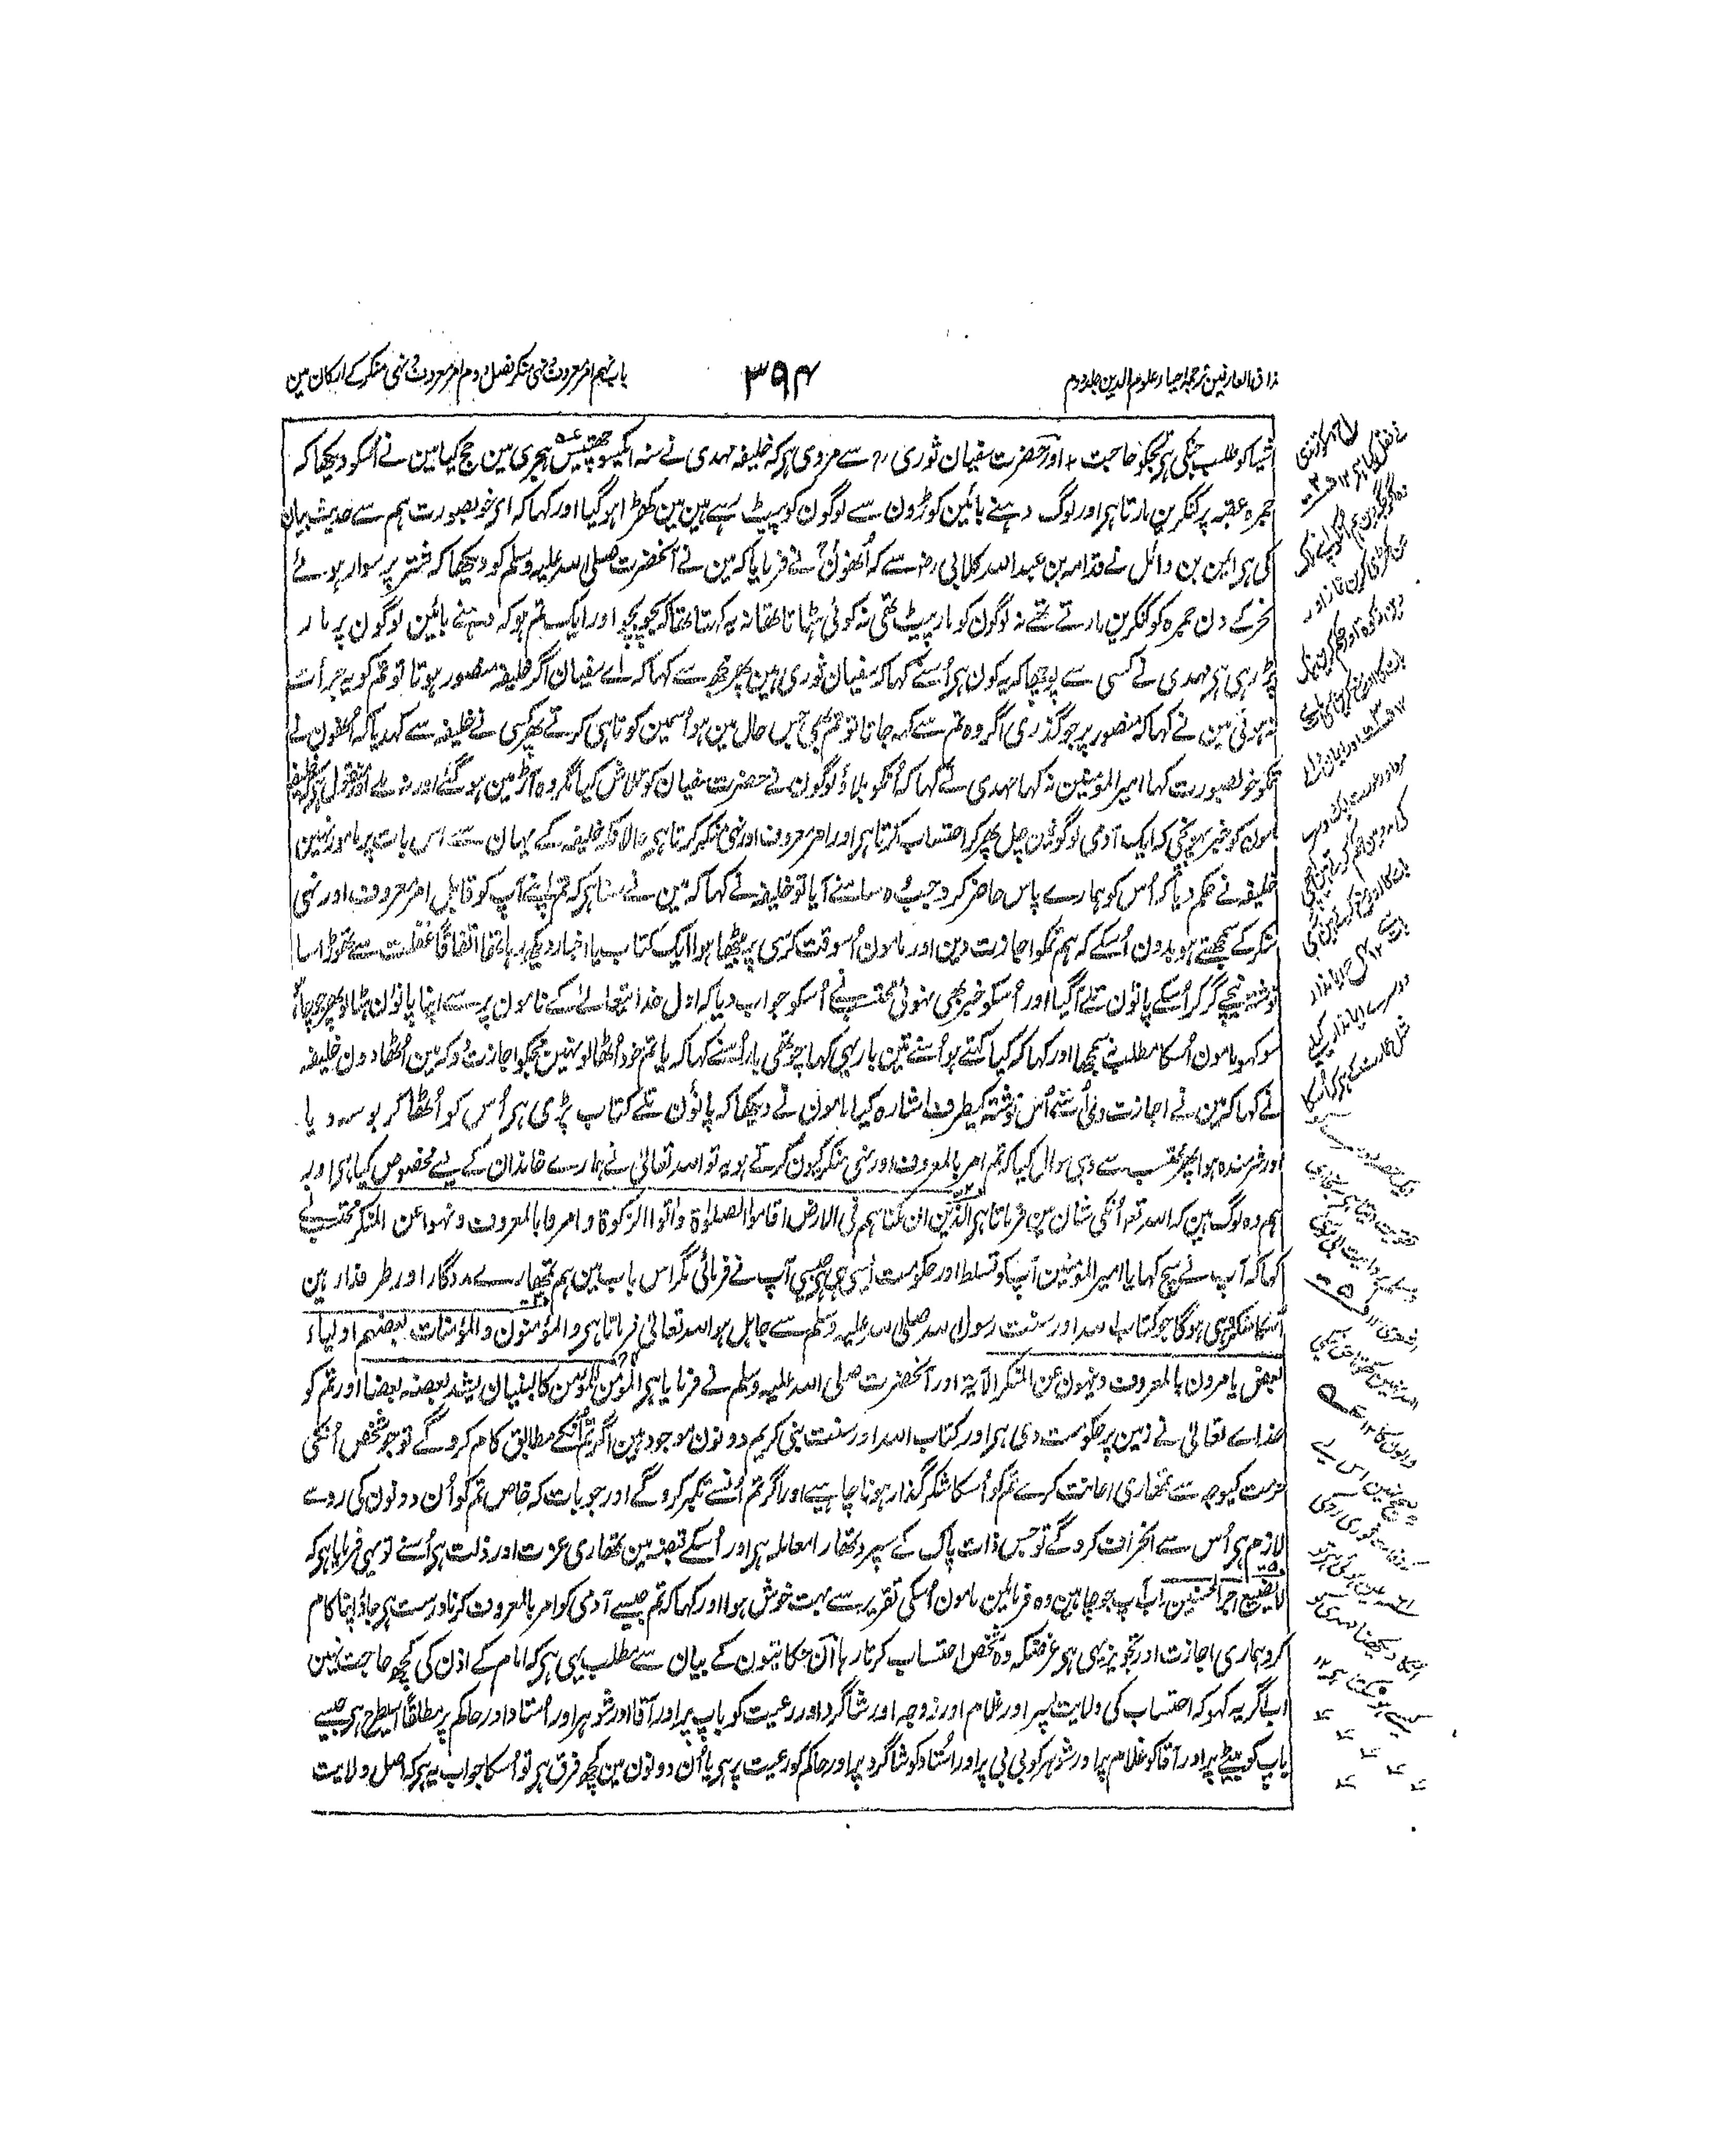 مذاق العارفین ترجمہ احیاء علوم الدین جلد دوم
۳۹۴
باب نہم امر معروف و نہی منکر فصل دوم امر معروف و نہی منکر کے ارکان مین
اشیا کو طلب جنکی ہر تجکو حاجت ۴ اور حضرت سفیان ثوری رح سے مروی ہر کہ خلیفہ مہدی نے سنہ ایکسو چھتیس ہجری مین حج کیا مین نے اُسکو دیکھا کہ
جمرہ عقبہ پر کنکرین مارتا ہر اور لوگ دہنے بائین کوڑون سے لوگون کو پیٹ رہے ہین مین کھڑا ہو گیا اور کہا کہ ای خوبصورت ہم سے حدیث بیان
کی ہر ایمن بن وائل نے قدامہ بن عبد اللہ کلابی رض سے کہ اُنھون نے فرمایا کہ مین نے آنحضرت صلی اللہ علیہ وسلم کو دیکھا کہ شتر پر سوار ہوئے
نحر کے دن جمرہ کو کنکرین مارتے تھے نہ لوگون کو مار پیٹ تھی نہ کوئی ہٹاتا تھا نہ یہ کہتا تھا کہ بچو بچو اور ایک تم ہو کہ دہنے بائین لوگون پر مار
پڑ رہی ہر مہدی نے کسی سے پوچھا کہ یہ کون ہر اُسنے کہا کہ سفیان ثوری ہین پھر مجھ سے کہا کہ اے سفیان اگر خلیفہ منصور ہوتا تو تم کو یہ جرأت
نہ ہوتی مین نے کہا کہ منصور پر جو گذری اگر وہ تم سے کہہ جاتا تو تم بھی جس حال مین ہو اُسمین کوتاہی کرتے پھر کسی نے خلیفہ سے کہدیا کہ اُنھون نے
تمکو خوبصورت کہا امیر المؤمنین نہ کہا مہدی نے کہا کہ اُنکو بلاؤ لوگون نے حضرت سفیان کو تلاش کیا مگر وہ آڑ مین ہو گئے اور نہ ملے اور منقول ہر کہ خلیفہ
مامون کو خبر پہونچی کہ ایک آدمی لوگونمین چل پھر کر احتساب کرتا ہر اور امر معروف اور نہی منکر کرتا ہر حالانکہ خلیفہ کے یہان سے اس بات پر مامور نہین
خلیفہ نے حکم دیا کہ اُس کو ہمارے پاس حاضر کرو جب وہ سامنے آیا تو خلیفہ نے کہا کہ مین نے سنا ہر کہ تم اپنے آپ کو قابل امر معروف اور نہی
منکر کے سمجھتے ہو بدون اُسکے کہ ہم تمکو اجازت دین اور مامون اُسوقت کرسی پر بیٹھا ہوا ایک کتاب یا اخبار دیکھ رہا تھا اتفاقاً غفلت سے تھوڑا سا
نوشتہ نیچے گر کر اُسکے پانؤن تلے آ گیا اور اُسکو خبر بھی نہوئی محتسب نے اُسکو جواب دیا کہ اول خدا تعالے کے نامون پر سے اپنا پانؤن ہٹا لو پھر جو چاہو
سو کہو مامون اُسکا مطلب نہ سمجھا اور کہا کہ کیا کہتے ہو اُسنے تین بار یہی کہا چوتھی بار اُسنے کہا کہ یا تم خود اُٹھا لو نہین مجھکو اجازت دو کہ مین اُٹھا دون خلیفہ
نے کہا کہ مین نے اجازت دی اُسنے اُس نوشتہ کیطرف اشارہ کیا مامون نے دیکھا کہ پانؤن تلے کتاب پڑی ہر اُس کو اُٹھا کر بوسہ دیا
اور شرمندہ ہوا پھر محتسب سے وہی سوال کیا کہ تم امر بالمعروف اور نہی منکر کیون کرتے ہو یہ تو اللہ تعالیٰ نے ہمارے خاندان کے لیے مخصوص کیا ہر اور
ہم وہ لوگ ہین کہ اللہ تعہ اُنکی شان مین فرماتا ہر الذین ان مکناہم فی الارض اقاموا الصلوٰۃ واٰتوا الزکوۃ وامروا بالمعروف ونہوا عن المنکر محتسب نے
کہا کہ آپ نے سچ کہا یا امیر المؤمنین آپ کو تسلط اور حکومت ایسی ہی ہر جیسی آپ نے فرمائی مگر اس باب مین ہم تمھارے مددگار اور طرفدار ہین
اسکا منکر وہی ہوگا جو کتاب اللہ اور سنت رسول اللہ صلی اللہ علیہ وسلم سے جاہل ہو اللہ تعالیٰ فرماتا ہر والمؤمنون والمؤمنات بعضہم اولیاء
بعض یامرون بالمعروف وینہون عن المنکر الآیۃ اور آنحضرت صلی اللہ علیہ وسلم نے فرمایا ہر المؤمن للمؤمن کالبنیان یشد بعضہ بعضا اور تم کو
خداے تعالیٰ نے زمین پر حکومت دی ہر اور کتاب اللہ اور سنت نبی کریم دونون موجود ہین اگر تم اُنکے مطابق کام کرو گے تو جو شخص اُنکی
حرمت کیوجہ سے تمھاری اعانت کرے تم کو اُسکا شکر گذار ہونا چاہیے اور اگر تم اُنسے تکبر کرو گے اور جو بات کہ خاص تم کو اُن دونون کی رو سے
لازم ہر اُس سے انحراف کرو گے تو جس ذات پاک کے سپرد تمھارا معاملہ ہر اور اُسکے قبضہ مین تمھاری عزت اور ذلت ہر اُسنے تو یہی فرمایا ہر کہ
لا یضیع اجر المحسنین اب آپ جو چاہین وہ فرمائین مامون اُسکی تقریر سے بہت خوش ہوا اور کہا کہ تم جیسے آدمی کو امر بالمعروف کرنا درست ہر جاؤ اپنا کام
کرو ہماری اجازت اور تجویز یہی ہر غرضکہ وہ شخص احتساب کرتا رہا اُن حکایتون کے بیان سے مطلب یہی ہر کہ امام کے اذن کی کچھ حاجت نہین
اب اگر یہ کہو کہ احتساب کی ولایت پسر اور غلام اور زوجہ اور شاگرد اور رعیت کو باپ پر اور آقا اور شوہر اور اُستاد اور حاکم پر مطلقاً اسیطرح ہر جیسے
باپ کو بیٹے پر اور آقا کو غلام پر اور شوہر کو بی بی پر اور اُستاد کو شاگرد پر اور حاکم کو رعیت پر ہر یا اُن دونون مین کچھ فرق ہر تو اُسکا جواب یہ ہر کہ اصل ولایت